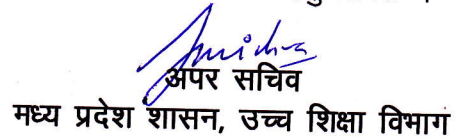 अपर सचिव
मध्य प्रदेश शासन, उच्च शिक्षा विभाग